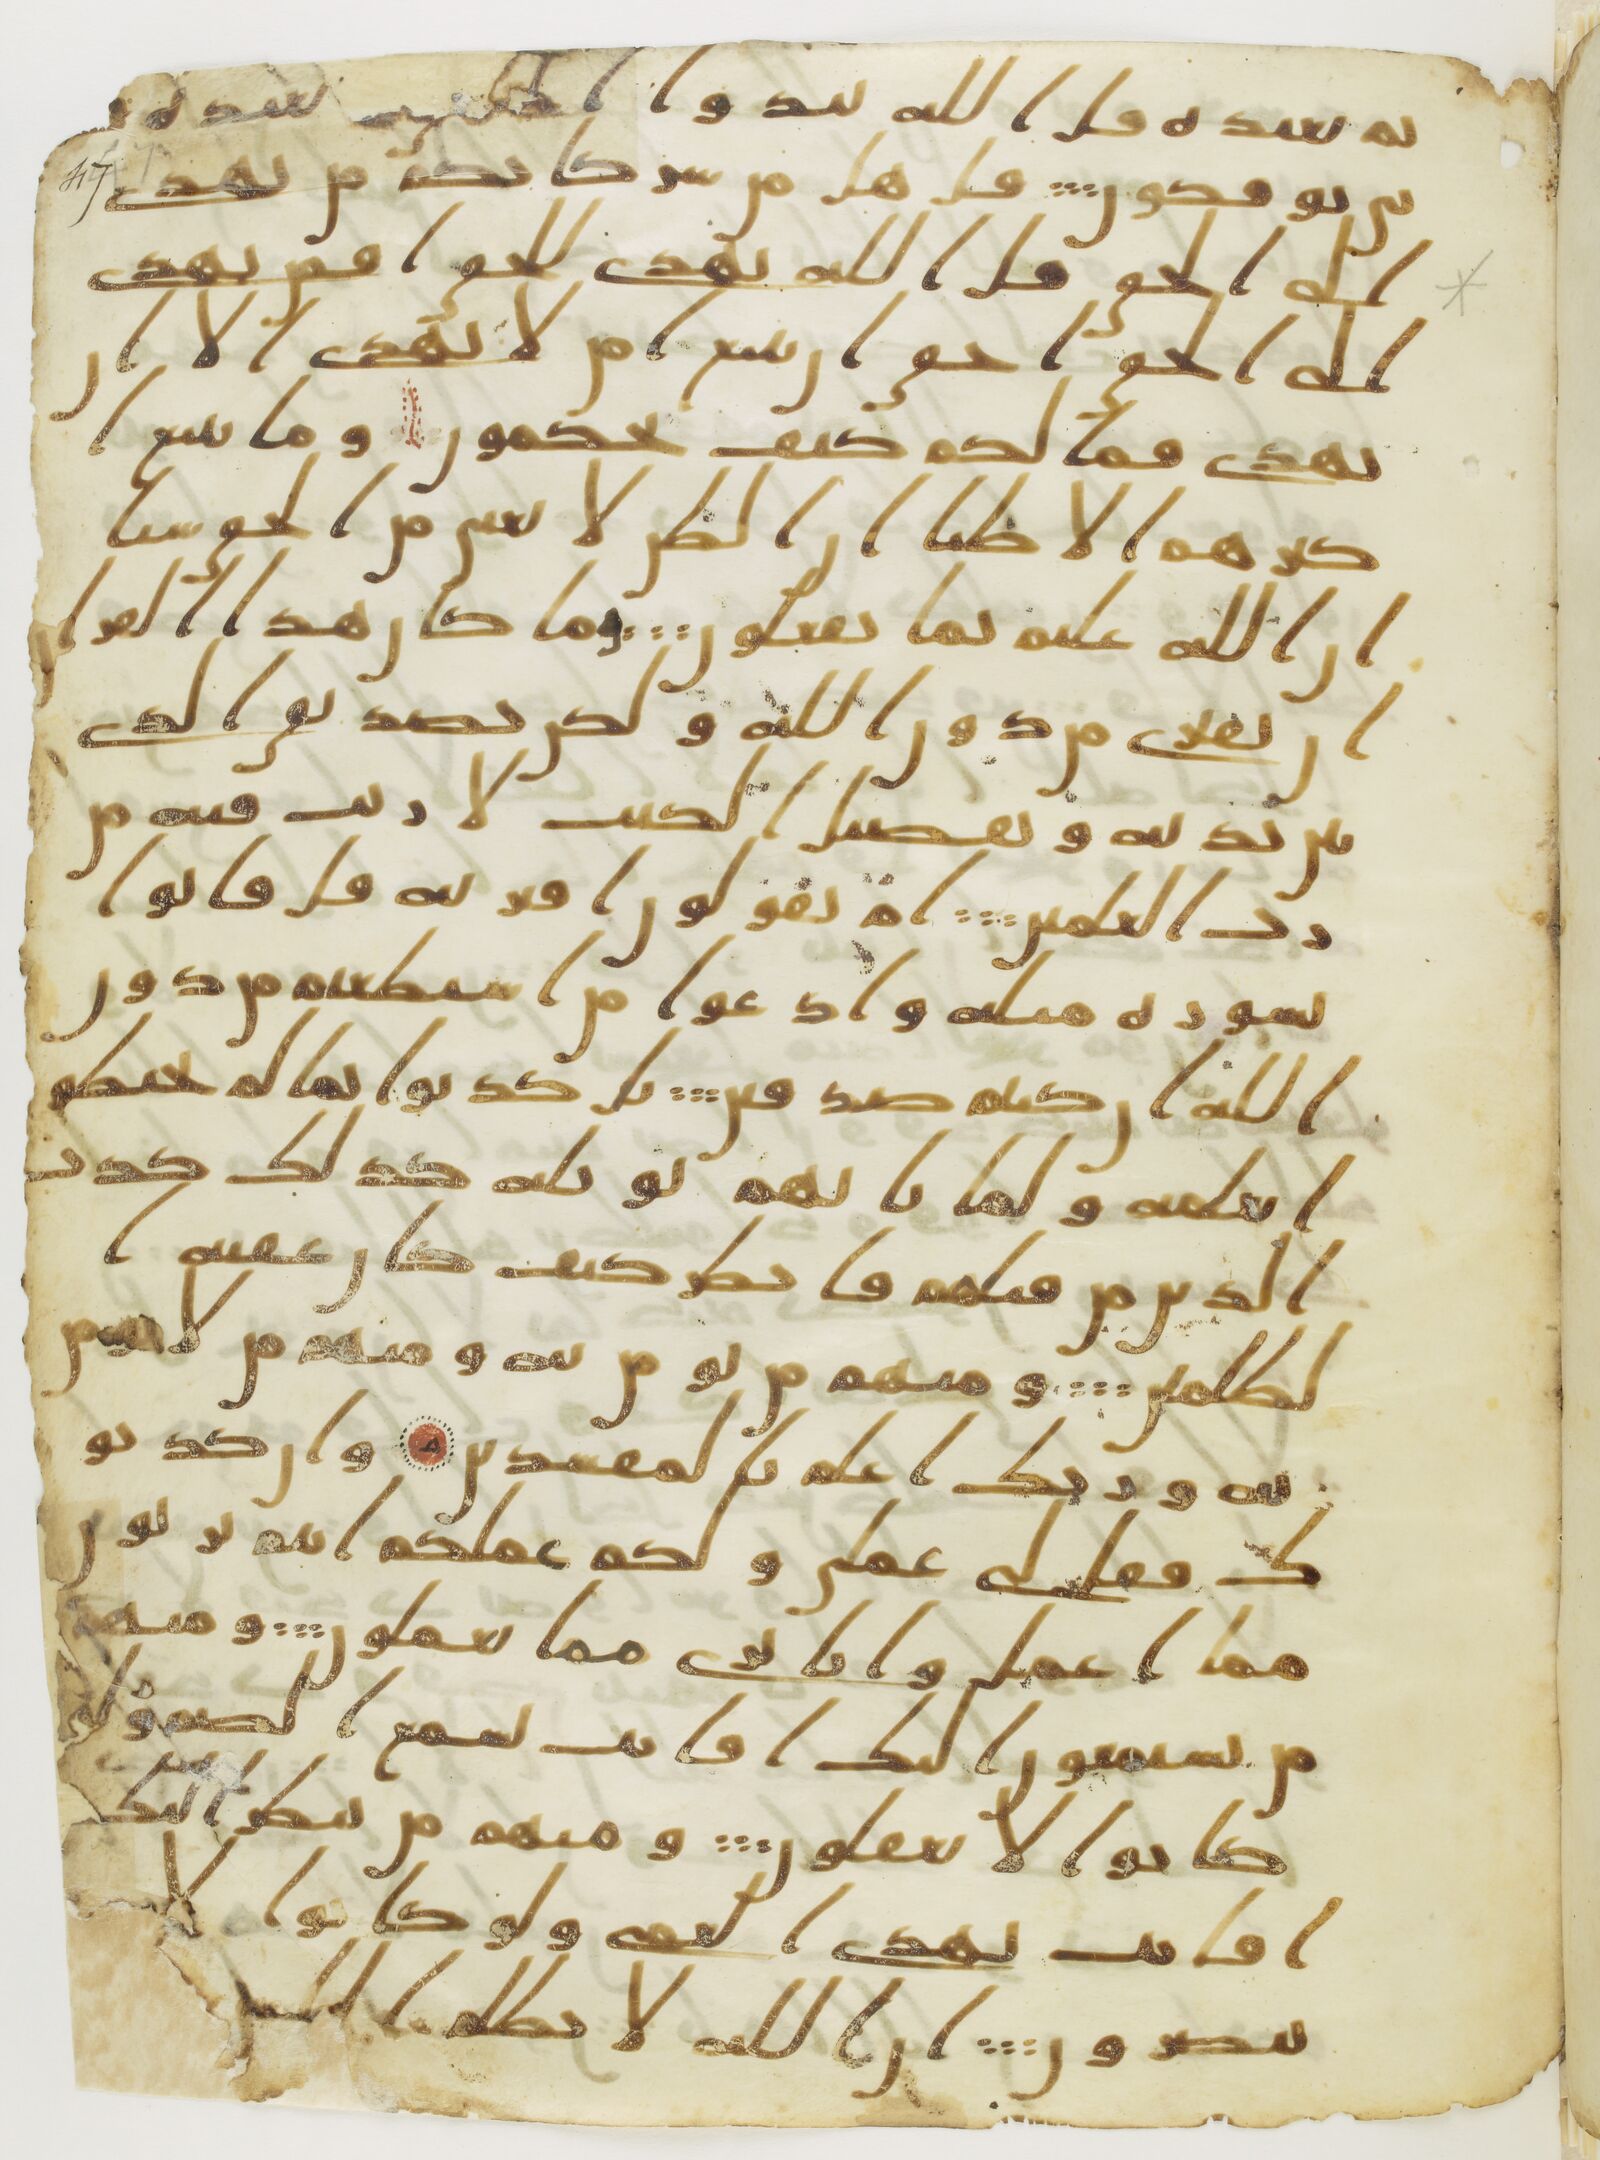 ثم يعيده قل الله يبدوا الخلق ثم يعيده
نى توفكون ؞ قل هل من شركائكم من يهدى
الى الحق قل الله يهدى للحق افمن يهدى
الى الحق احق ان يتبع امن لا يهدى الا ان
يهدى فما لكم كيف تحكمون وما يتبع ا
كثرهم الا ظنا ان الظن لا يغنى من الحق شيا
ان الله عليم بما يفعلون ؞ وما كان هذا القران
ان يفترى من دون الله ولكن تصديق الذى
بين يديه وتفصيل الكتب لا ريب فيه من
رب العلمين ؞ ام يقولون افتريه قل فاتوا
بسورة مثله وادعوا من استطعتم من دون
الله ان كنتم صدقين ؞ بل كذبوا بما لم يحيطو
ا بعلمه ولما ياتهم تويله كذلك كذب
الذين من قبلهم فانظر كيف كان عقبة ا
لظلمين ؞ ومنهم من يومن به ومنهم من لا يومن
به وربك اعلم بالمفسدين وان كذبو
ك فقل لى عملى ولكم عملكم انتم بريون
مما اعمل وانا برى مما تعملون ؞ ومنهم
من يستمعون اليك افانت تسمع الصم ولو
كانوا لا يعقلون ؞ ومنهم من ينظر اليك
افانت تهدى العمى ولو كانوا لا
يبصرون ؞ ان الله لا يظلم الناس